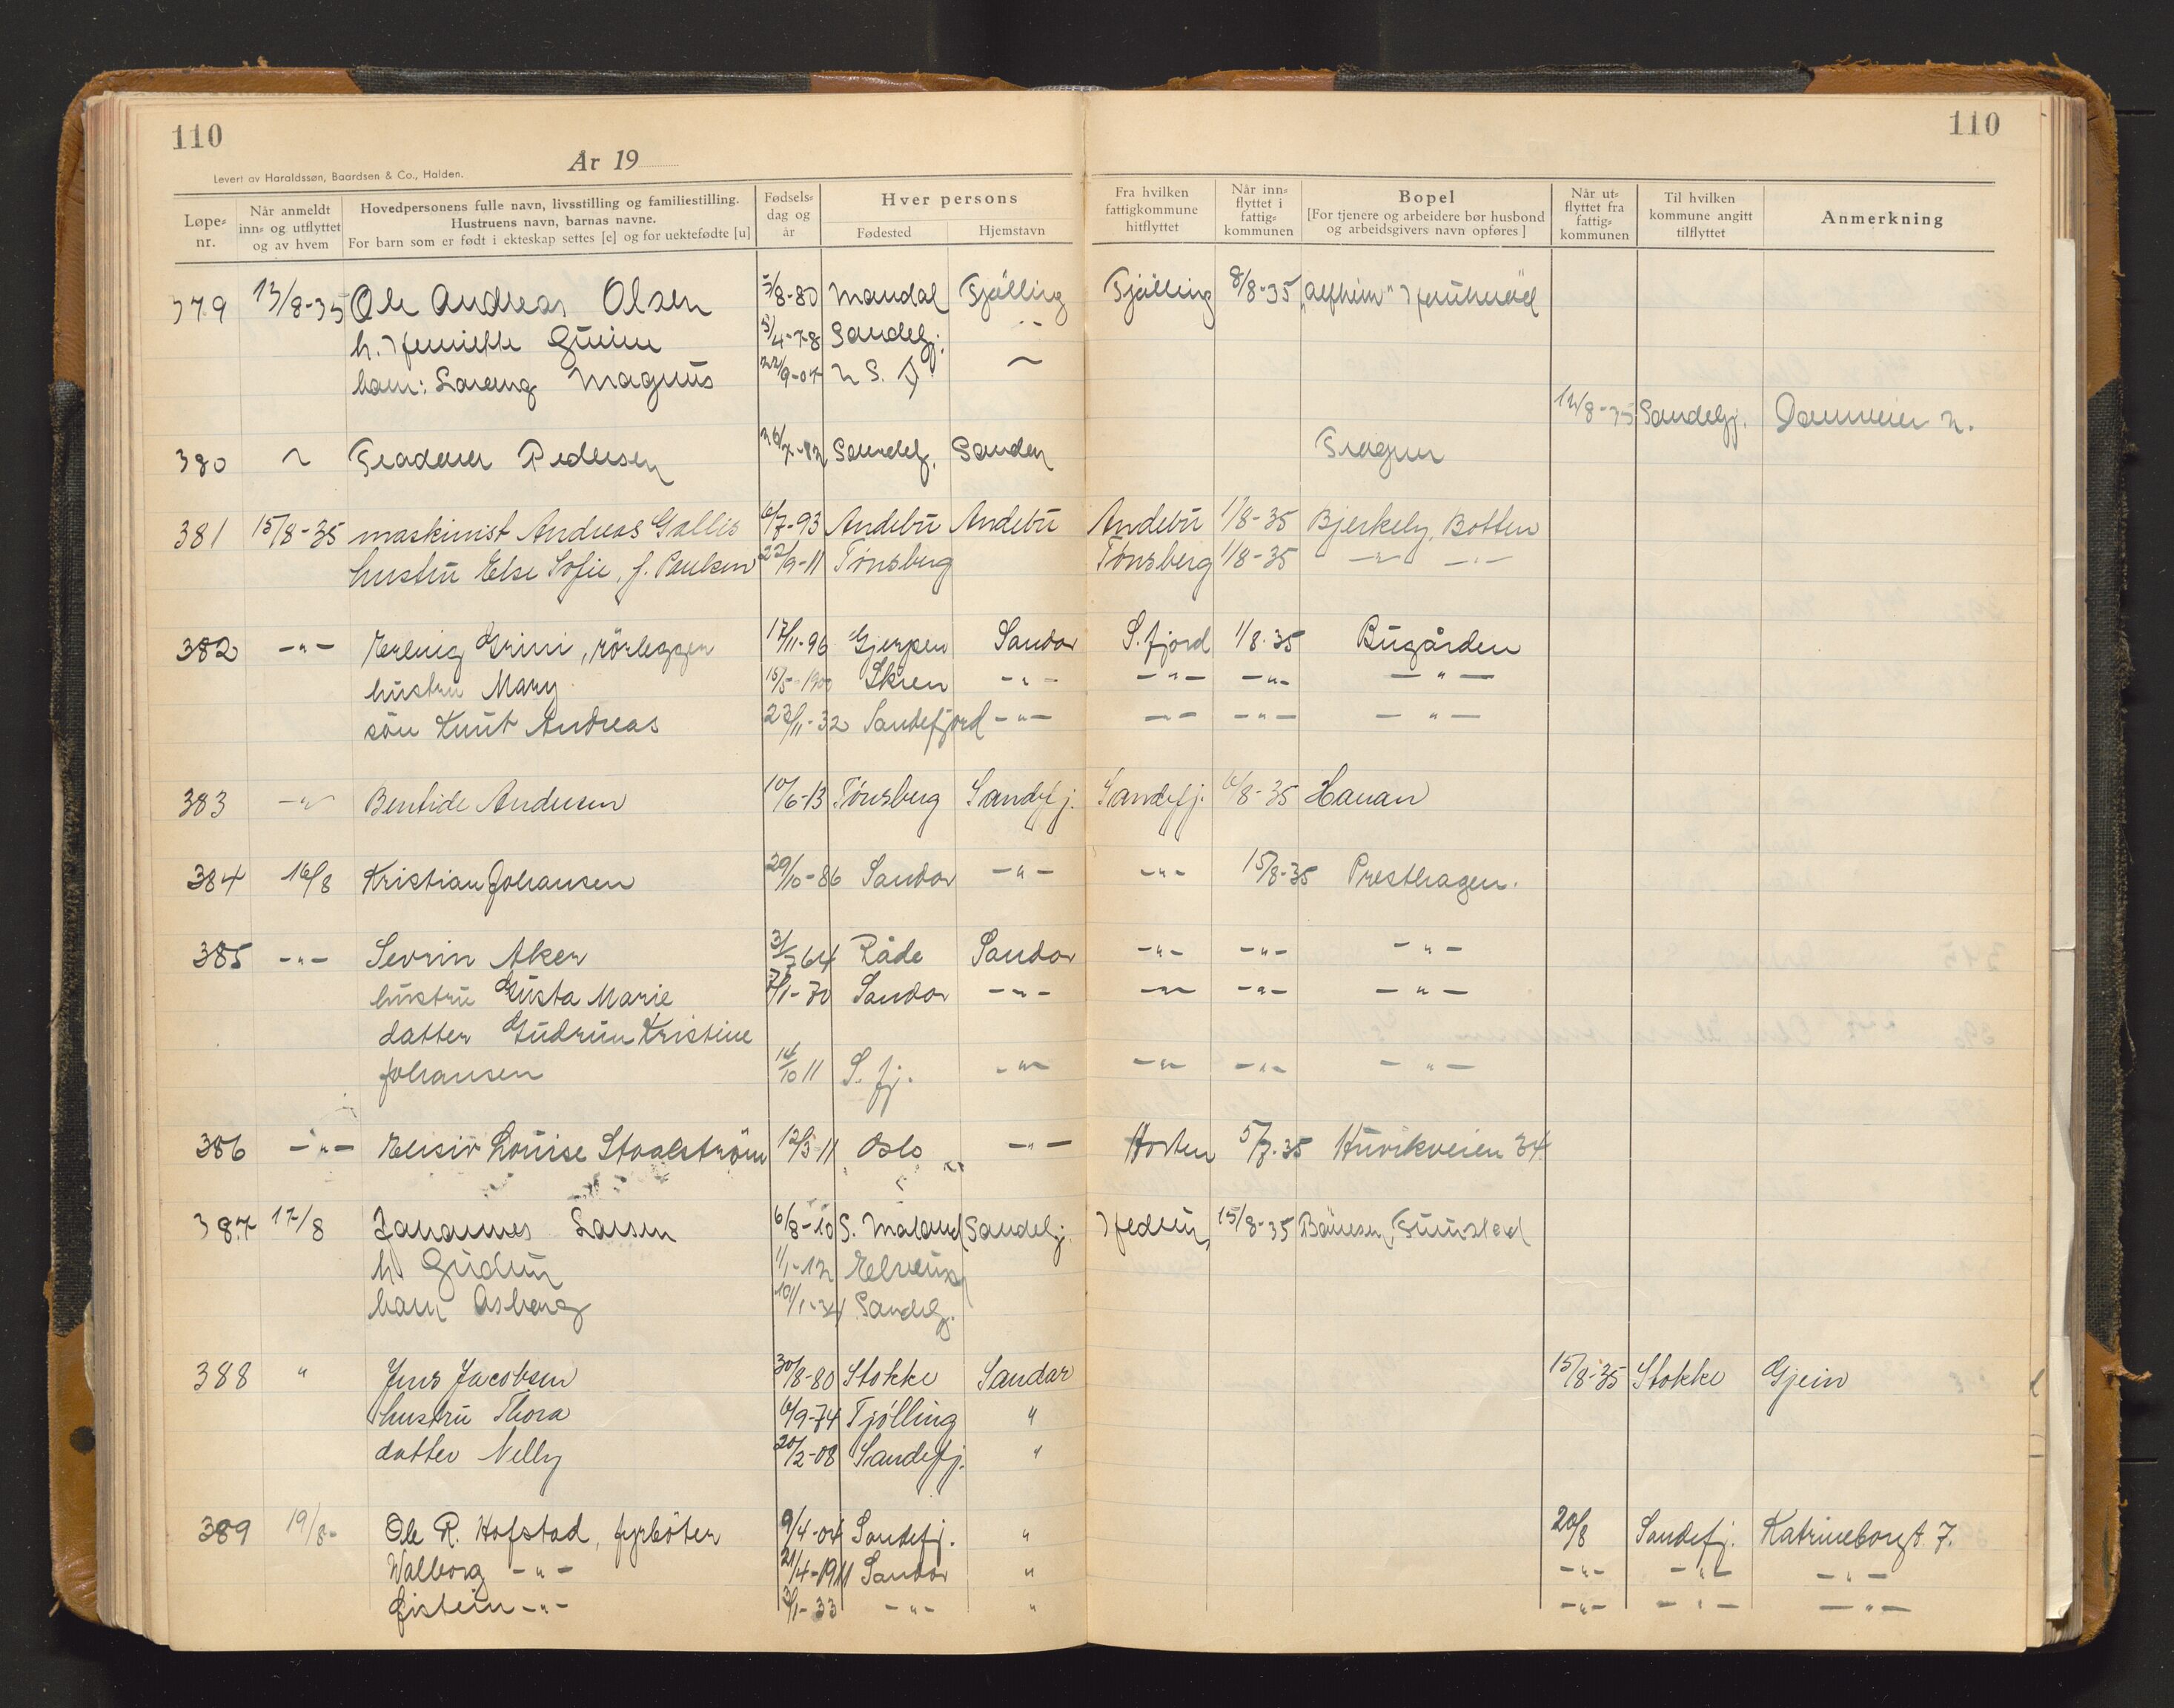 110
110
År 19
Levert av Haraldssøn, Baardsen & Co., Halden.
Løpe-nr. | Når anmeldt inn- og utflyttet og av hvem | Hovedpersonens fulle navn, livsstilling og familiestilling. Hustruens navn, barnas navne. For barn som er født i ekteskap settes [e] og for uektefødte [u] | Fødsels-dag og år | Hver persons Fødested | Hjemstavn | Fra hvilken fattigkommune hitflyttet | Når inn-flyttet i fattig-kommunen | Bopel [For tjenere og arbeidere bør husbond og arbeidsgivers navn opføres] | Når ut-flyttet fra fattig-kommunen | Til hvilken kommune angitt tilflyttet | Anmerkning
379 13/8-35 Ole Andreas Olsen 5/8-80 Mandal Tjølling Tjølling 8/8-35
h. 5/4-78 Sandefj.
barn: Magnus 22/9-07
12/8-35 Sandefj.
380 Pedersen Sandefj. Sandar
381 15/8-35 maskinist Andreas Gallis 6/7-93 Andebu Andebu Andebu 1/8-35 Bjerkely, Botten
hustru Else Sofie, f. Paulsen 22/9-11 Tönsberg Tönsberg 1/8-35 -"- -"-
382 -"- Erling Grini, rörlegger 17/11-96 Gjerpen Sandar S.fjord 1/8-35 Bugården
hustru Mary 15/5-1900 Skien -"- -"- -"- -"-
sön Knut Andreas 23/11-32 Sandefjord -"- -"- -"- -"-
383 -"- Bentide Andersen 10/6-13 Tönsberg Sandefj. Sandefj. 6/8-35 Hauan
384 16/8 Kristian Johansen 29/10-86 Sandar -"- -"- 15/8-35 Presthagen.
385 -"- Sevrin Aker 3/7 64 Råde Sandar -"- -"- -"-
hustru Gusta Marie /1-70 Sandar -"- -"- -"- -"-
datter Gudrun Kristine
Johansen 14/10 11 S. fj. -"- -"- -"- -"-
386 -"- Elisiv Louise Staalström 12/3-11 Oslo -"- Horten 5/7-35 Huvikveien 34.
387 17/8 Johannes Larsen 6/8-10 S. Sandefj. 15/8-35
h. Gudrun 1/1-12 Elverum
barn Asbjørg 10/1-34 Sandefj.
388 " Jens Jacobsen 30/8-80 Stokke Sandar 15/8-35 Stokke Gjein
hustru Thora 6/9-74 Tjölling "
datter Nelly 20/2-08 Sandefj. "
389 19/8- Ole R. Hofstad, fyrböter 9/4-04 Sandefj. " 20/8 Sandefj. Katrineborgt. 7.
Walborg -"- 21/4-1911 Sandar " -"- -"- -"-
Øistein -"- 3/1-33 -"- " -"- -"- -"-